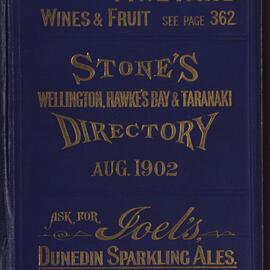 WINES & FRUIT SEE PAGE 362
STONE'S
WELLINGTON, HAWKE'S BAY & TARANAKI
DIRECTORY
AUG. 1902
ASK FOR Joel's,
DUNEDIN SPARKLING ALES.